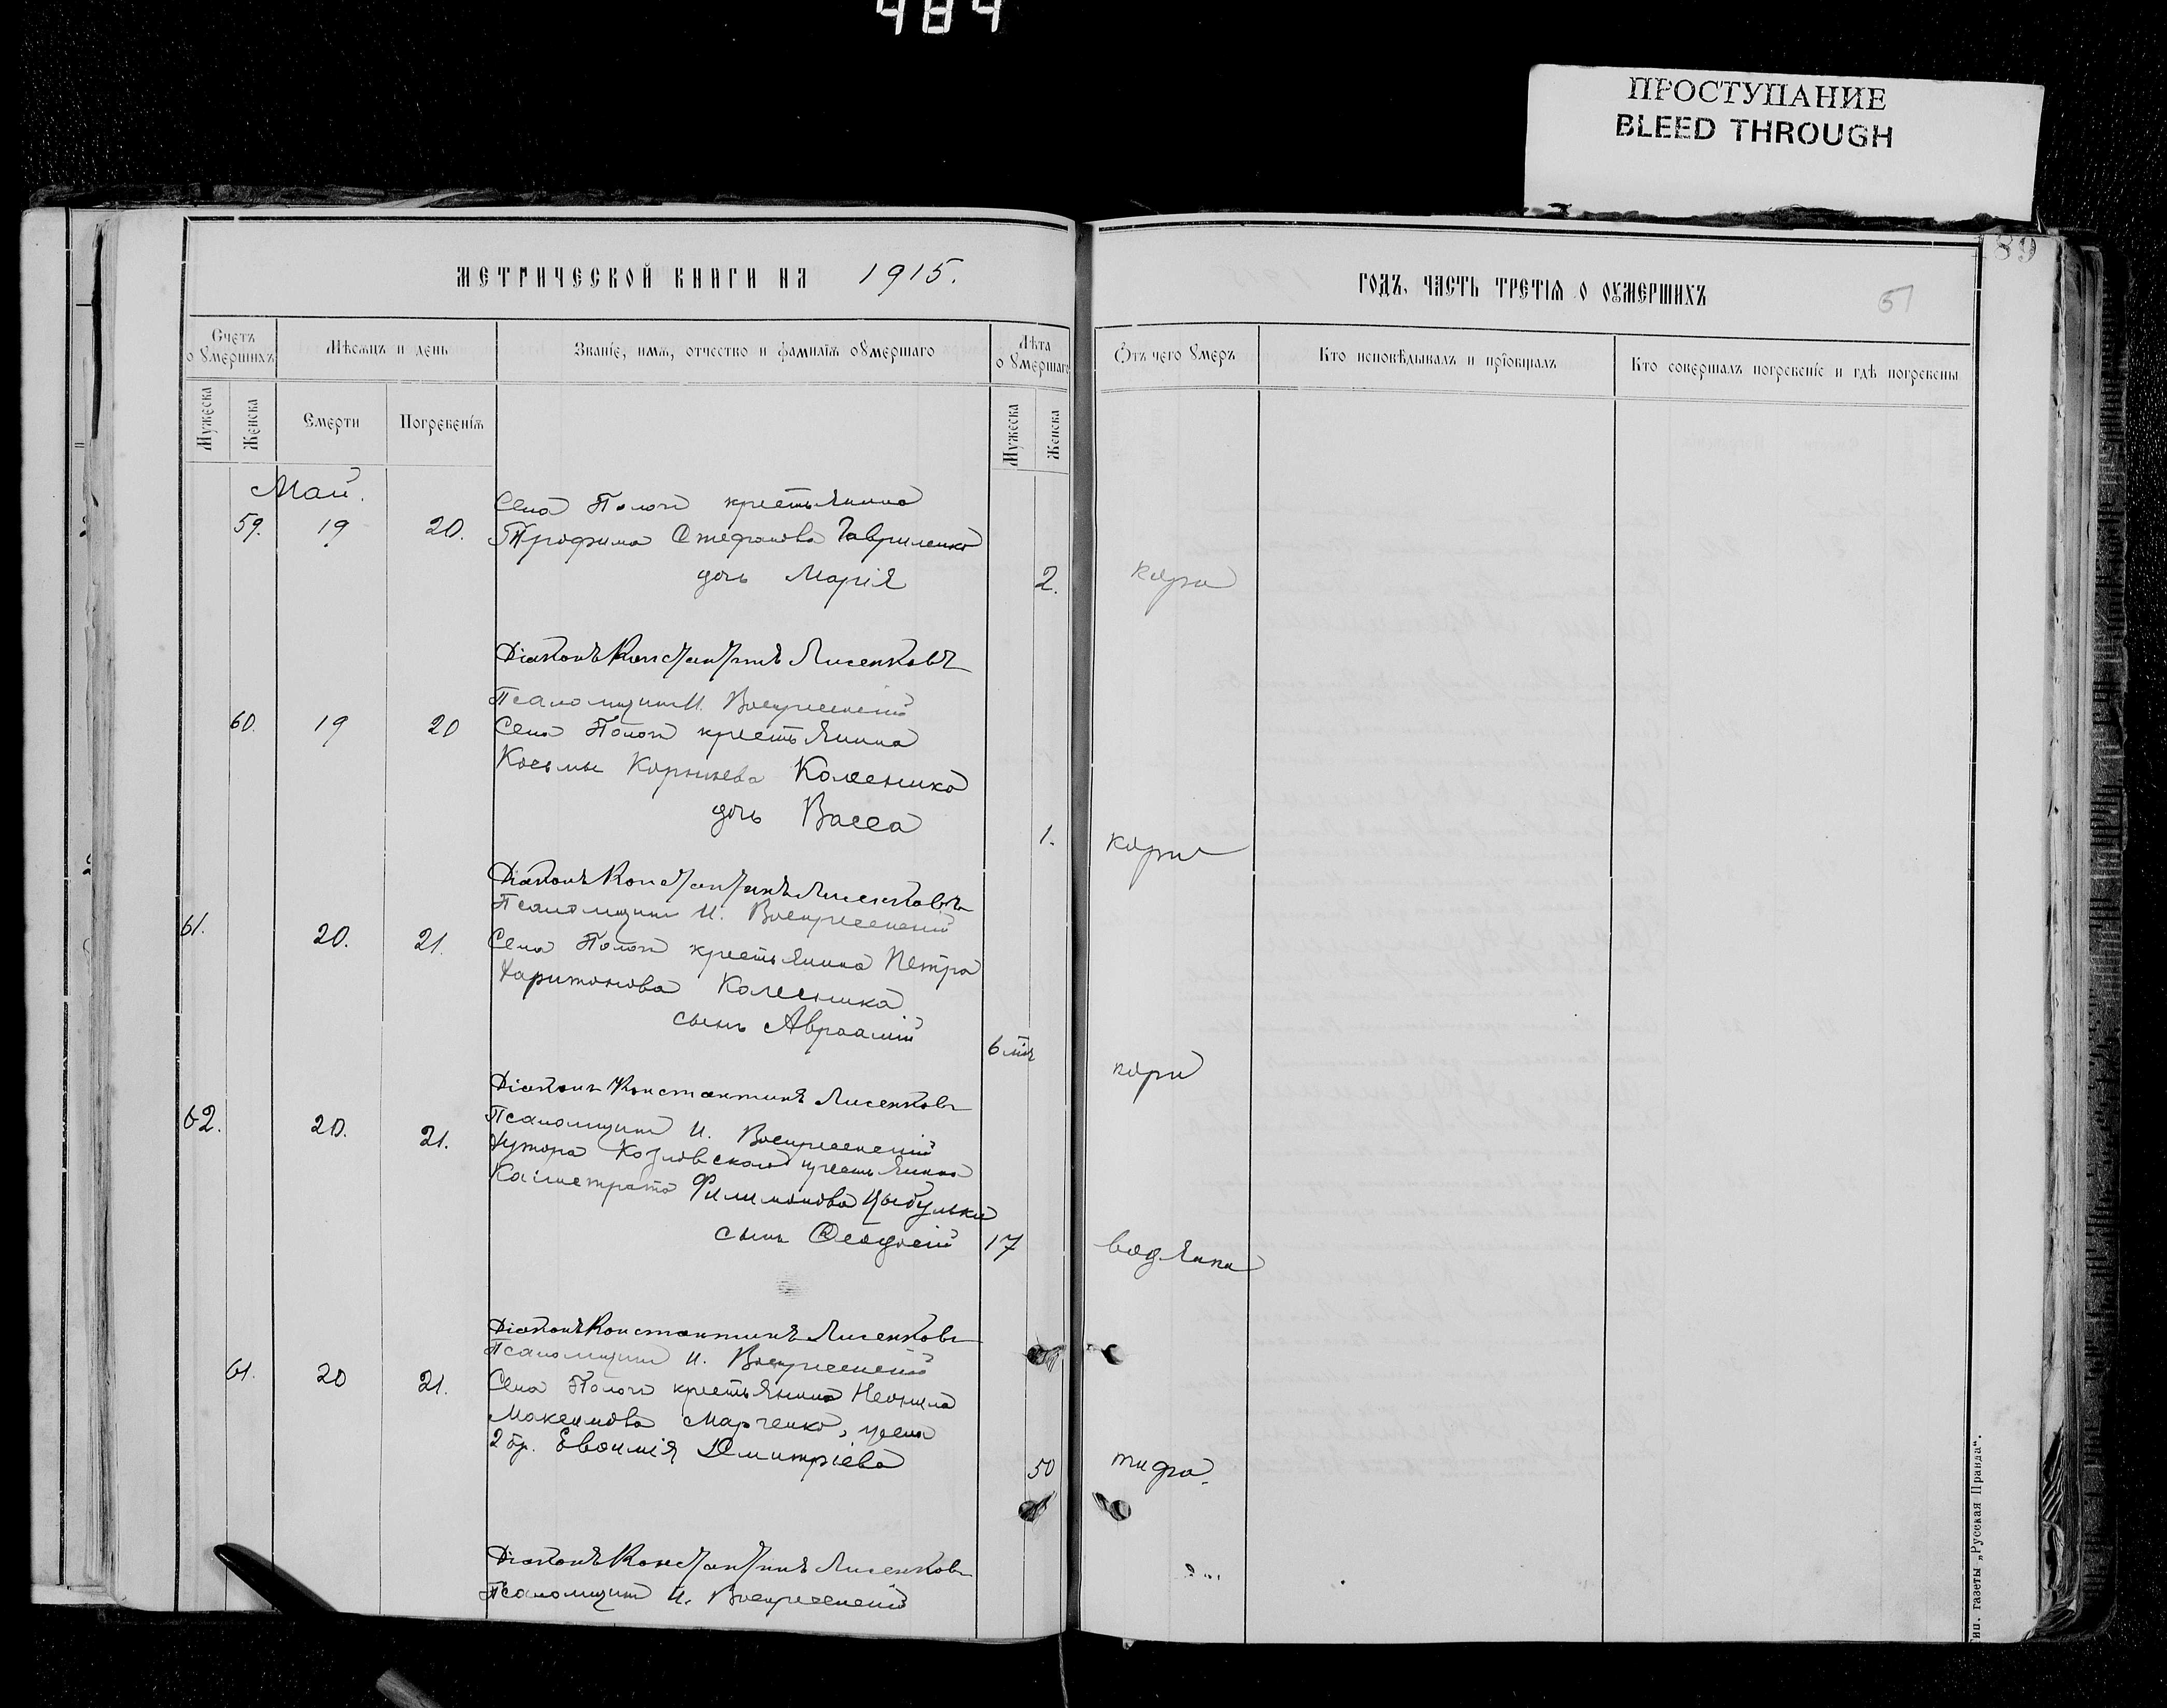 484
ПРОСТУПАНИЕ
BLEED THROUGH
МЕТРИЧЕСКОЙ КНИГИ НА 1915.
ГОДЪ, ЧАСТЬ ТРЕТІЯ О ОУМЕРШИХЪ
89
51
Счетъ оумершихъ
Мѣсяцъ и день
Званіе, имя, отчество и фамилія оумершаго
Лѣта оумершаго
Отъ чего умеръ
Кто исповѣдывалъ и пріобщалъ
Кто совершалъ погребеніе и гдѣ погребены
Мужеска
Женска
Смерти
Погребенія
Мужеска
Женска
Май.
59. 19 20. Села Пологи крестьянина
Трофима Стефанова Гавриленко
дочь Марія 2. кори
Діаконъ Константинъ Лисенковъ
Псаломщикъ И. Воскресенскій
60. 19 20 Села Пологи крестьянина
Косьмы Корнѣева Колесника
дочь Васса 1. кори
Діаконъ Константинъ Лисенковъ
Псаломщикъ И. Воскресенскій
61. 20. 21. Села Пологи крестьянина Петра
Харитонова Колесника
сынъ Авраамій 6 мѣс кори
Діаконъ Константинъ Лисенковъ
Псаломщикъ И. Воскресенскій
62. 20. 21. Хутора Козловскаго крестьянина
Калистрата Филимонова Цыбульки
сынъ Ѳеодосій 17 водянки
Діаконъ Константинъ Лисенковъ
Псаломщикъ И. Воскресенскій
61. 20 21. Села Пологи крестьянина Неонила
Максимова Марченко, жена
2 бр. Евѳимія Димитріева 50 тифа.
Діаконъ Константинъ Лисенковъ
Псаломщикъ И. Воскресенскій
Тип. газеты „Русская Правда“.